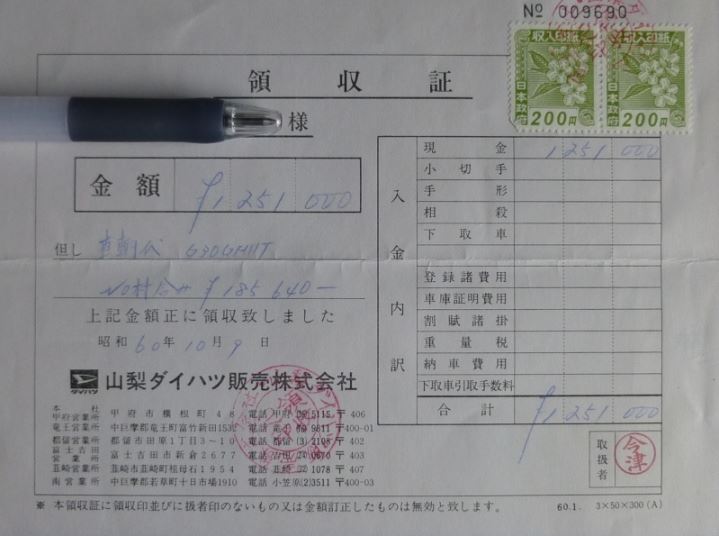 № 009690
収入印紙 収入印紙
日本政府 日本政府
200円 200円
領収証
様
金額 ¥1 251 000
但し 車輌代 G30GHIIT
¥185 640-
上記金額正に領収致しました
昭和 60年 10月 9日
ダイハツ 山梨ダイハツ販売株式会社
本社
甲府営業所 甲府市横根町48 電話 甲府 5115 〒406
竜王営業所 中巨摩郡竜王町富竹新田1532 電話 9811 〒400-01
都留営業所 都留市田原1丁目3-10 電話 都留 (3) 2105 〒402
富士吉田営業所 富士吉田市新倉2677 電話 0670 〒403
韮崎営業所 韮崎市韮崎町祖母石1954 電話 韮崎 1078 〒407
南営業所 中巨摩郡若草町十日市場1910 電話 小笠原(2)3511 〒400-03
入金内訳
現金 1 251 000
小切手
手形
相殺
下取車
登録諸費用
車庫証明費用
割賦諸掛
重量税
納車費用
下取車引取手数料
合計 ¥1 251 000
取扱者 今津
※ 本領収証に領収印並びに扱者印のないもの又は金額訂正したものは無効と致します。
60.1. 3×50×300(A)